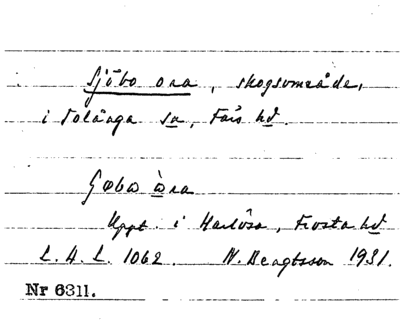 Sjöbo ora, skogsområde,
i Tolånga sn, Färs hd.
Uppt. i Harlösa, Frosta hd
L.A.L. 1062. N. Bengtsson 1931.
Nr 6311.